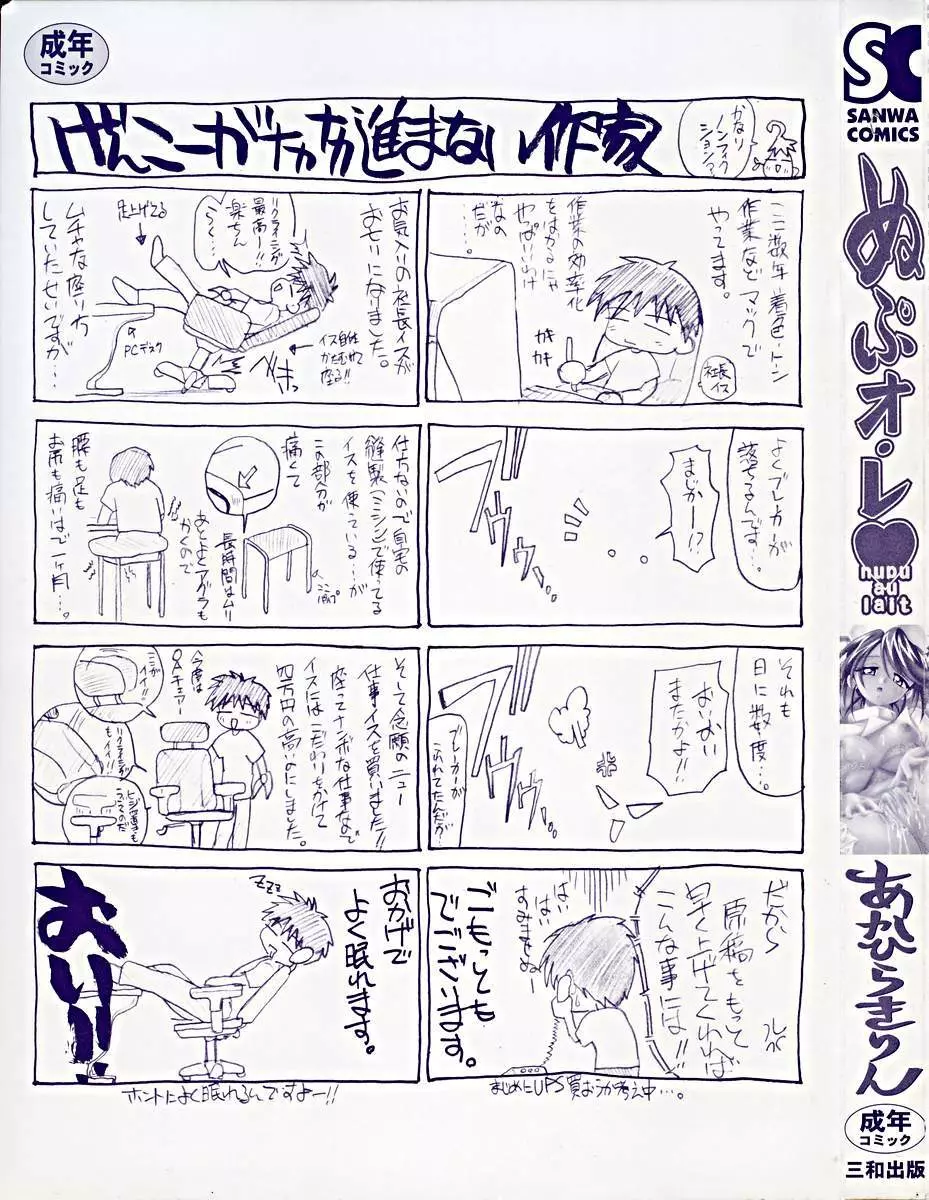 成年
コミック
げんこーがナカナカ進まない作家
かなり
ノンフィク
ションマ
ここ数年着色・トン
作業など マックで
やってます。
作業の効率化
をはかるにゃ
やっぱいいわけ
なの
だが
……
カキ
カキ
社長
イス
よくブレーカーが
落ちるんです…。
まじかー!?
ブツッ
それも
日に数度…。
おいおい
またかよ!!
ブツッ
ブレーカーが
こわれてたんだが…
だから
原稿をもって
早く上げてくれれば
こんな事には!!
はい
はい
すみません
ごもっとも
でございます。
まじめにUPS買おうか考え中…。
お気入りの社長イスが
おむりになりました。
リクライニングが
最高ー!!
楽ちん
足上げてる
PCデスク
イス自体
かたむけて
座る!!
ムチャな座り方
していたせいですが…
仕方ないので自宅の
縫製(ミシン)で使ってる
イスを使っている…が
この部分が
痛くて
長時間はムリ
あとよくアグラも
かくので
腰も足も
お尻も痛いはで一ヶ月…。
そして念願のニュー
仕事イスを買いました!!
座ってナンボな仕事なので
イスにはこだわりをかけて
四万円の高いにしました。
今度は
OAチェアー
ここが
イイ!!
リクライニングが
もイイ!!
おかげで
よく眠れます。
ZZZ
おい!!
ホントによく眠れるんですよー!!
SC
SANWA
COMICS
ぬぷオ・レ♥
nupu
au
lait
あかひらきりん
成年
コミック
三和出版